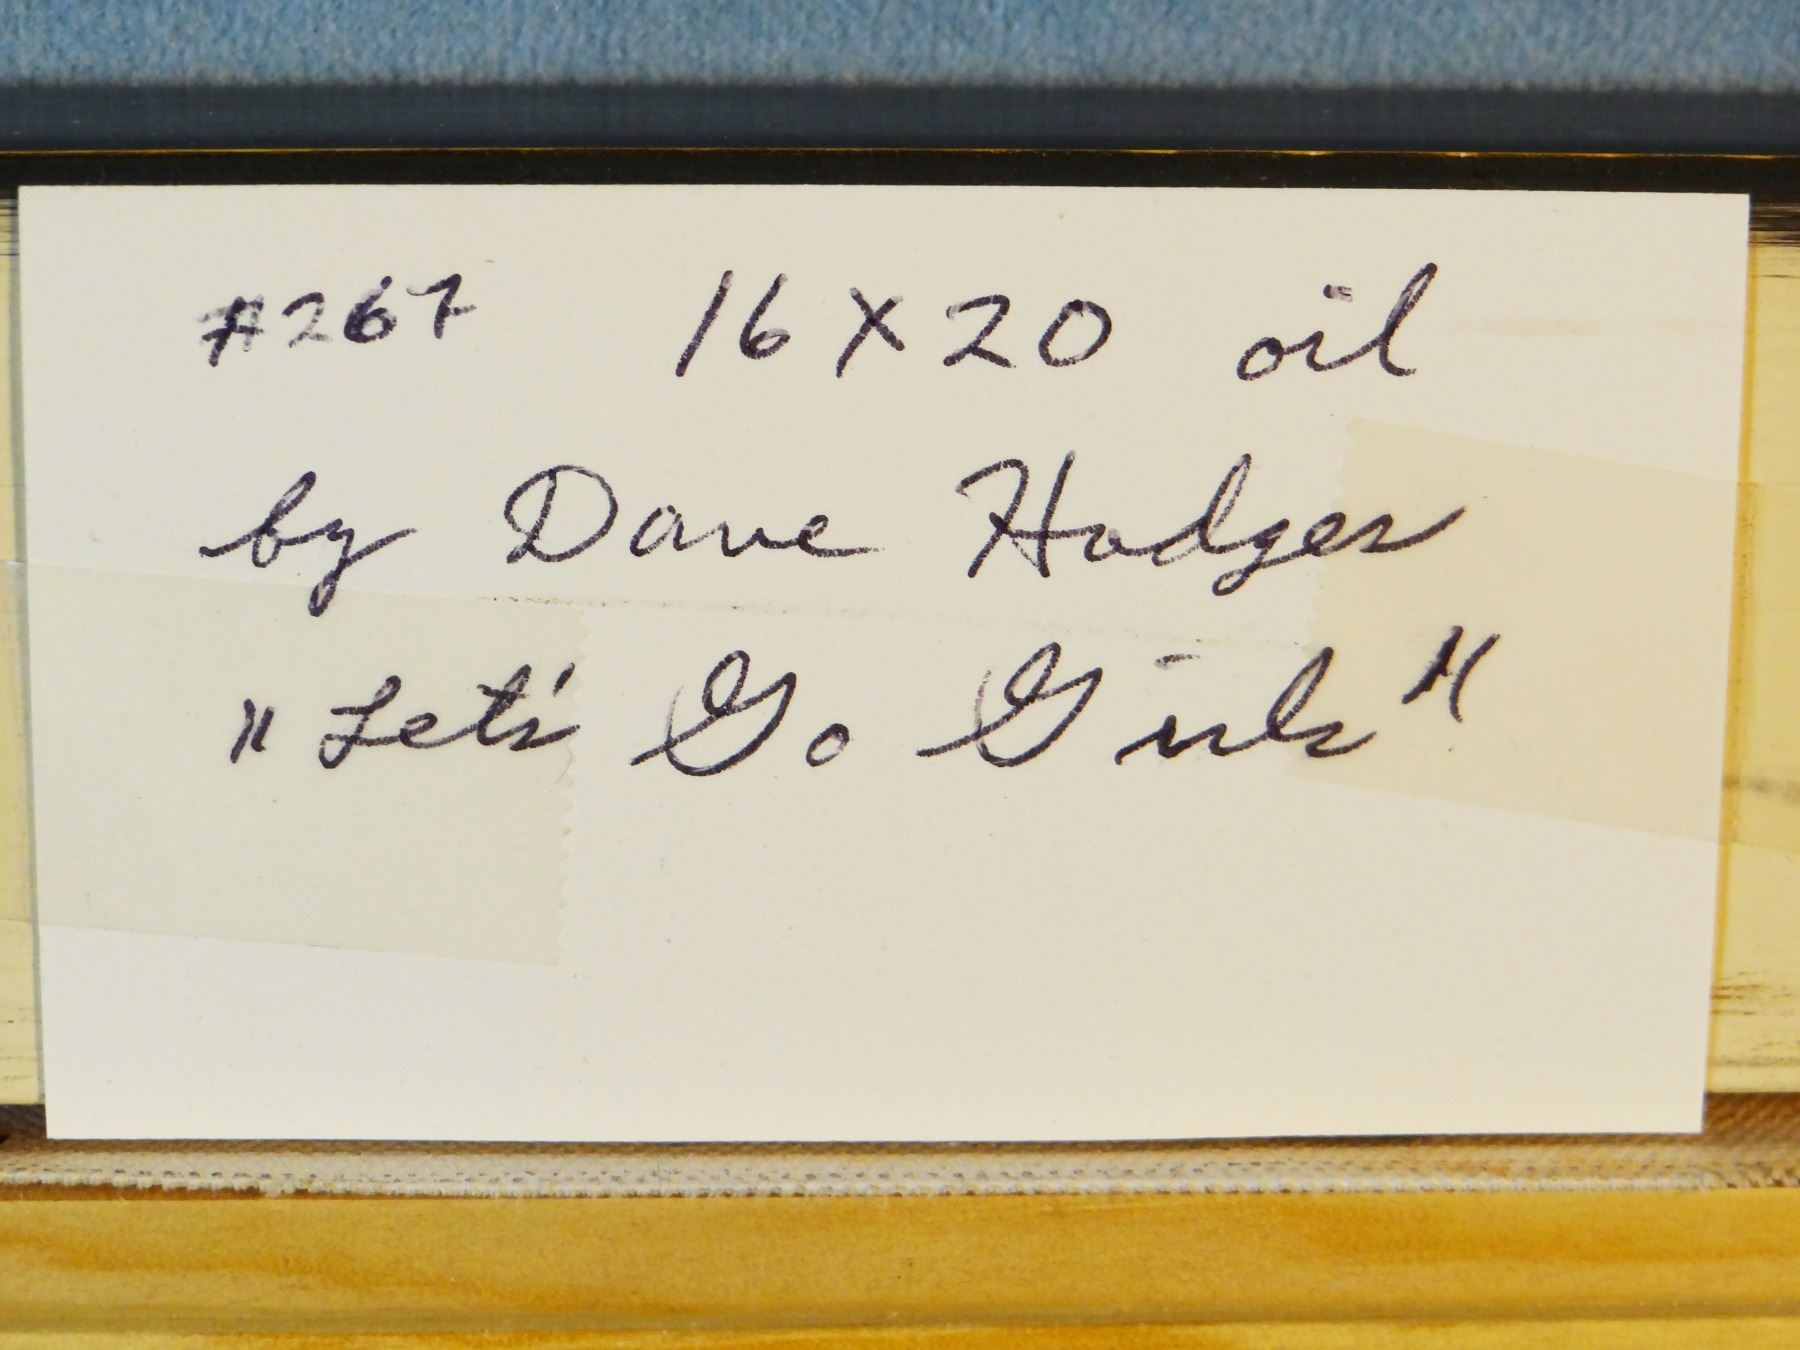 #267 16 X 20 oil
by Dave Hodges
"Let's Go Girls"